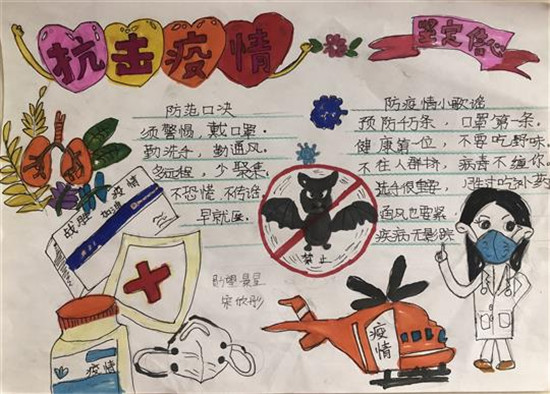 抗击疫情
坚定信心
防范口决
须警惕，戴口罩.
勤洗手，勤通风.
多远程，少聚集.
不恐慌，不传谣.
早就医.
防疫情小歌谣
预防千万条，口罩第一条.
健康第一位，不要吃野味.
不在人群挤，病毒不缠你.
洗手很重要，
通风也要紧.
疾病无影踪
战胜疫情
加油
禁止
宋欣彤
疫情
疫情